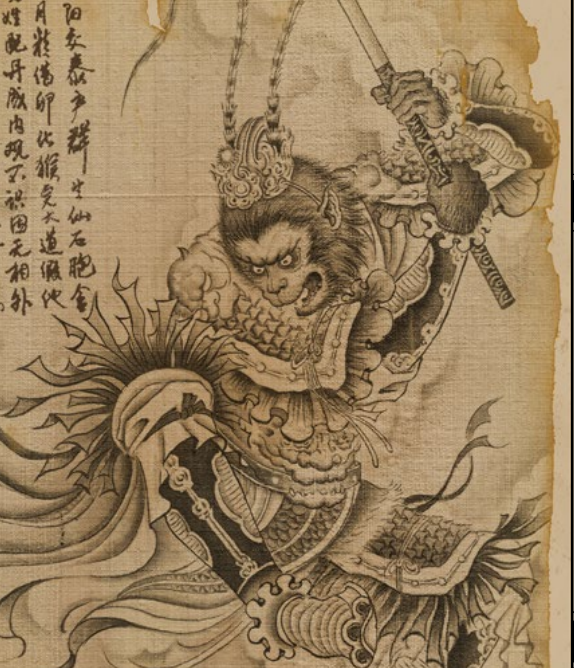 阳交泰产群生仙石胞含
月精借卵化猴完大道假他
姓配丹成内观不识因无相外